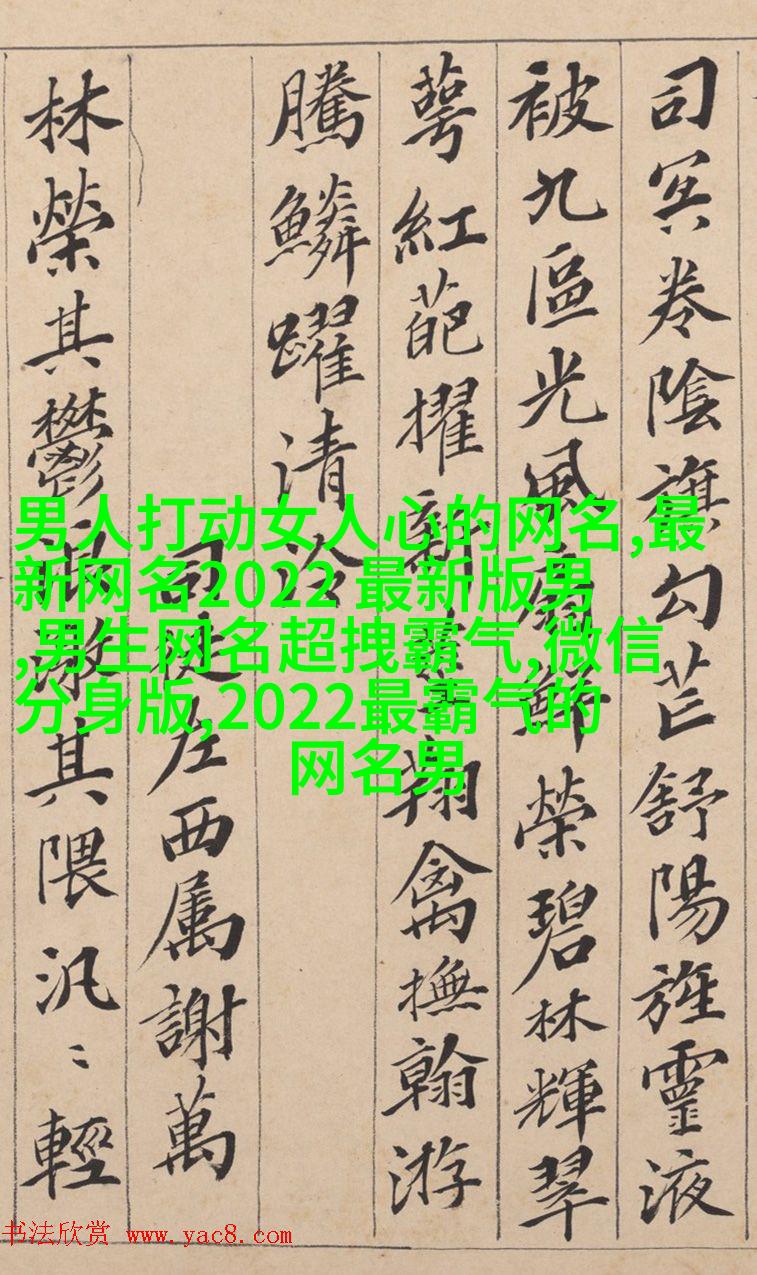 司冥卷陰旗勾芒舒陽旌靈液
被九區光風扇鮮榮碧林輝翠
萼紅葩擢新莖翔禽撫翰游
騰鱗躍清泠
司徒左西属謝萬
林榮其鬱浪激其隈汎〻輕
男人打动女人心的网名,最
新网名2022 最新版男
,男生网名超拽霸气,微信
分身版,2022最霸气的
网名男
书法欣赏 www.yac8.com